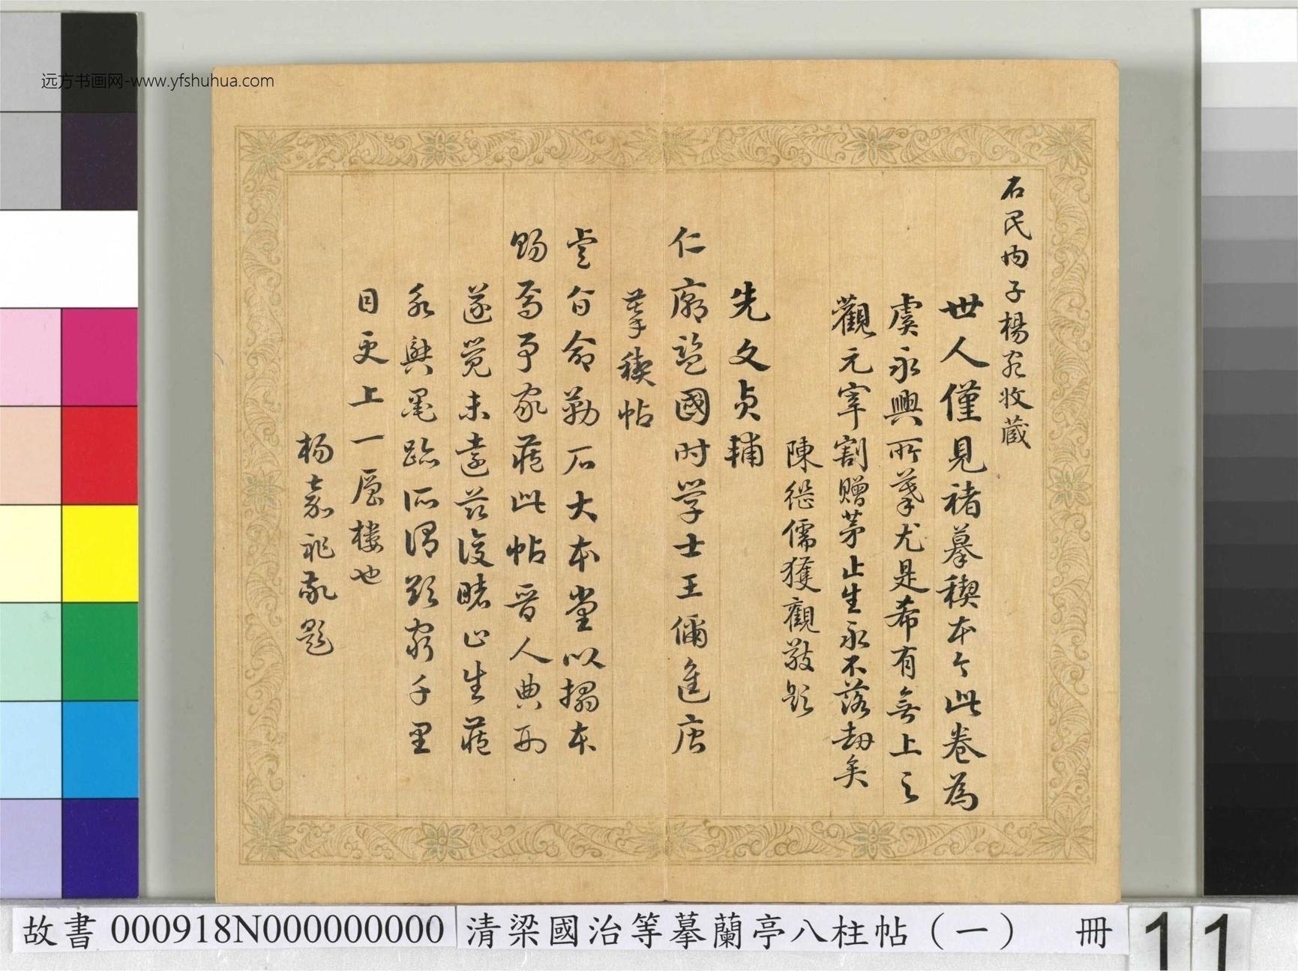 远方书画网-www.yfshuhua.com
石民内子楊宛收藏
世人僅見褚摹禊本今此卷為
虞永興所摹尤是希有無上之
觀元宰割贈茅止生永不落劫矣
陳繼儒獲觀敬題
先文貞輔
仁廟監國时学士王偁進唐
摹禊帖
命勒石大本堂以搨本
賜焉予家藏此帖晉人典刑
遂覺未遠茲復睹止生藏
永興墨跡所謂欲窮千里
目更上一层楼也
杨嘉祚敬題
故書 000918N000000000 清梁國治等摹蘭亭八柱帖（一） 冊 11